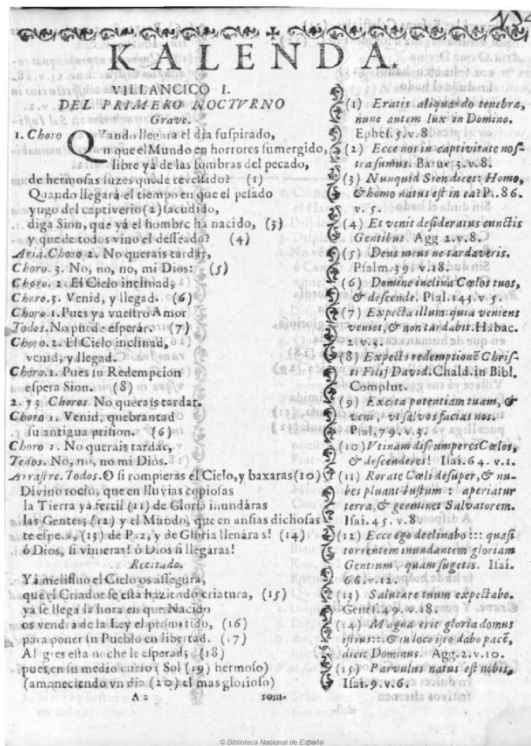 KALENDA.
VILLANCICO I.
DEL PRIMERO NOCTVRNO
Grave.
1. Choro QVando llegara el dia suspirado,
en que el Mundo en horrores sumergido,
libre yá de las sombras del pecado,
de hermosas luzes quede revestido? (1)
Quando llegará el tiempo en que el pesado
yugo del captiverio (2) sacudido,
diga Sion, que yá el hombre ha nacido, (3)
y que de todos vino el desseado? (4)
Aria. Choro 2. No querais tardar,
Choro. 3. No, no, no, mi Dios: (5)
Choro. 2. El Cielo inclinad,
Choro. 3. Venid, y llegad. (6)
Choro 1. Pues ya vuestro Amor
Todos. No puede esperar. (7)
Choro. 2. El Cielo inclinad,
venid, y llegad.
Choro. 1. Pues su Redempcion
espera Sion. (8)
2. y 3 Choros No querais tardar.
Choro 1. Venid, quebrantad
su antigua prision. (6)
Choro 1. No querais tardar,
Todos. No, no, no mi Dios.
Airastre. Todos. O si rompieras el Cielo, y baxaras (10)
Divino rocio, que en lluvias copiosas
la Tierra ya fertil (11) de Gloria inundáras
las Gentes, (12) y el Mundo, que en ansias dichosas
te espera, (13) de Paz, y de Gloria llenáras! (14)
ó Dios, si vinieras! ò Dios si llegaras!
Recitado.
Yá melifluo el Cielo os assegura,
que el Criador se esta haziendo criatura, (15)
ya se llega la hora en que Nacido
os vendra de la Ley el prometido, (16)
para poner su Pueblo en libertad. (17)
Alegres esta noche le esperad; (18)
pues, en su medio curso (Sol (19) hermoso)
(amaneciendo vn dia (20) el mas glorioso)
A 2
(1) Eratis aliquando tenebræ,
nunc autem lux in Domino.
Ephes. 5. v. 8.
(2) Ecce nos in captivitate nos-
tra sumus. Baruc 3. v. 8.
(3) Nunquid Sion dicet: Homo,
& homo natus est in ea? Ps. 86.
v. 5.
(4) Et veniet desideratus cunctis
Gentibus Agg 2. v. 8.
(5) Deus meus ne tardaveris.
Psalm. 39. v. 18.
(6) Domine inclina Cœlos tuos,
& descende. Psal. 143. v. 5.
(7) Expecta illum quia veniens
veniet, & non tardabit. Habac.
2. v. 3.
(8) Expecto redemptionẽ Chris-
ti Filij David. Chald. in Bibl.
Complut.
(9) Excita potentiam tuam, &
veni, vt salvos facias nos.
Psal, 79. v. 3.
(10) Vtinam disrumperes Cœlos,
& descenderes! Isai. 64. v. 1.
(11) Rorate Cœli desuper, & nu-
bes pluant Iustum: aperiatur
terra, & germinet Salvatorem.
Isai. 45. v. 8
(12) Ecce ego declinabo::: quasi
torrentem inundantem gloriam
Gentium, quam sugetis. Isai.
66. v. 12.
(13) Salutare tuum expectabo.
Genes. 49. v. 18.
(14) Magna erit gloria domus
istius::: & in loco isto dabo pacẽ,
dicit Dominus. Agg. 2. v. 10.
(15) Parvulus natus est nobis,
Isai. 9. v. 6.
© Biblioteca Nacional de España